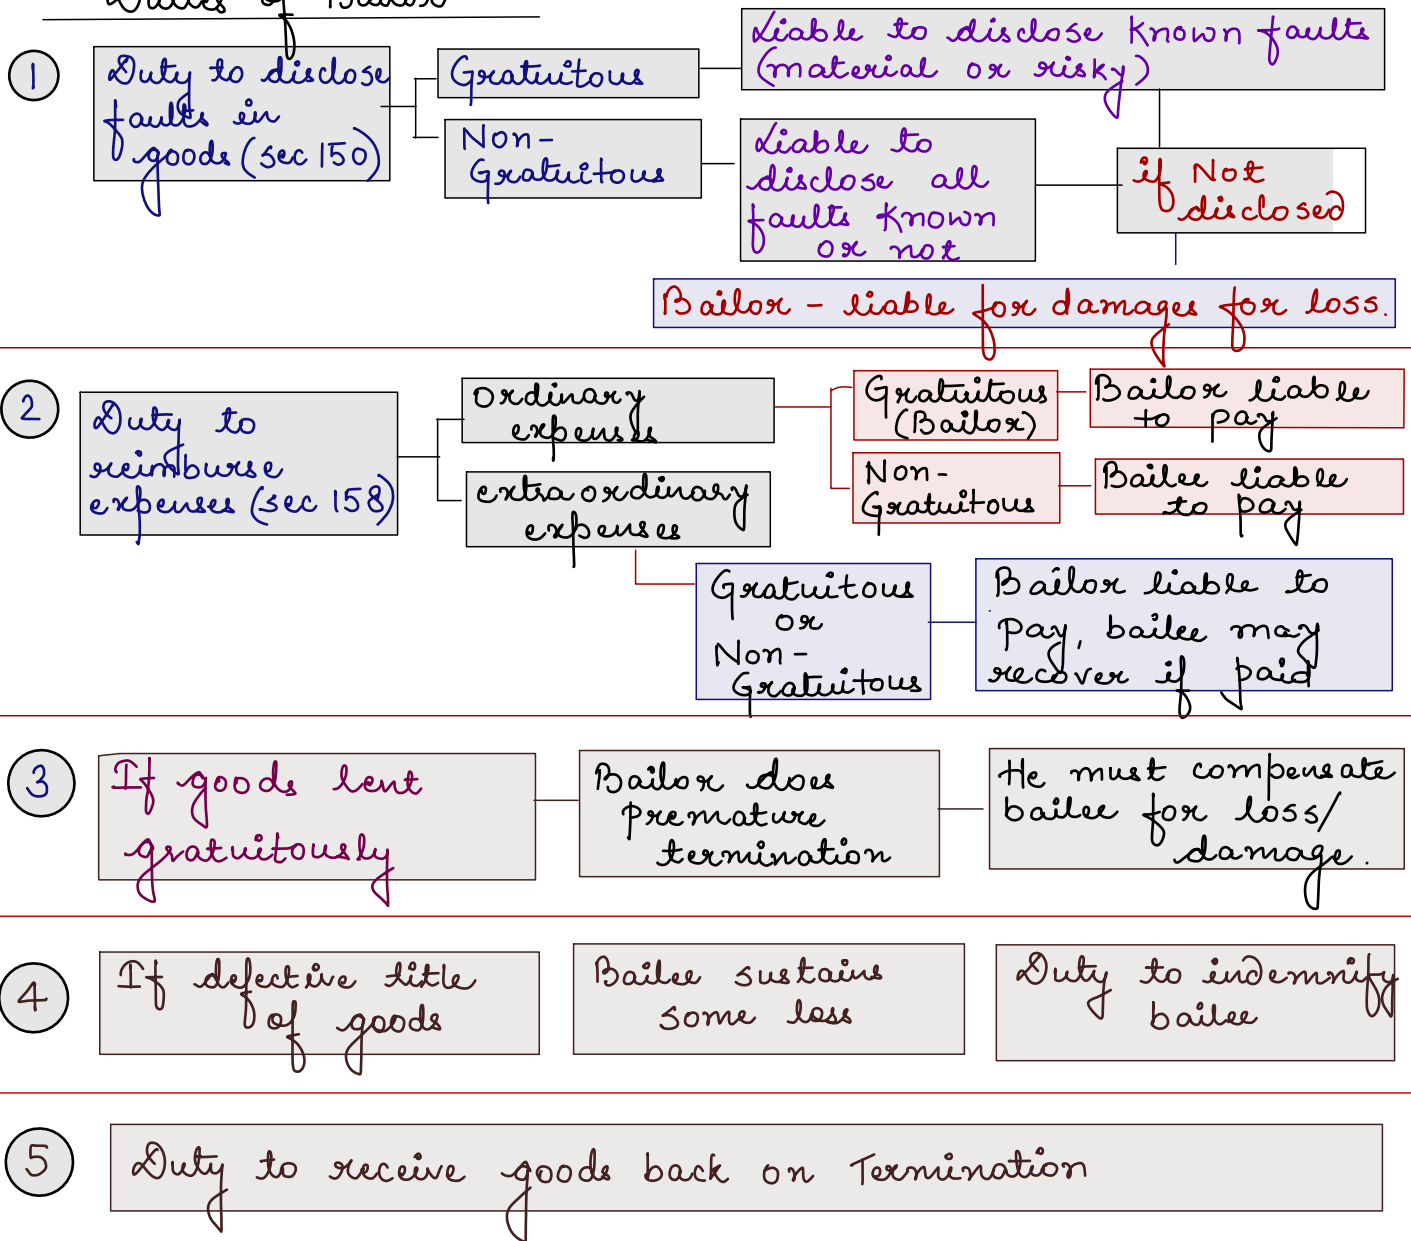 Duties of Bailor
1
Duty to disclose
faults in
goods (sec 150)
Gratuitous
Liable to disclose known faults
(material or risky)
Non-
Gratuitous
Liable to
disclose all
faults known
or not
if Not
disclosed
Bailor - liable for damages for loss.
2
Duty to
reimburse
expenses (sec 158)
Ordinary
expenses
Gratuitous
(Bailor)
Bailor liable
to pay
Non-
Gratuitous
Bailee liable
to pay
extra ordinary
expenses
Gratuitous
or
Non-
Gratuitous
Bailor liable to
pay, bailee may
recover if paid
3
If goods lent
gratuitously
Bailor does
premature
termination
He must compensate
bailee for loss/
damage.
4
If defective title
of goods
Bailee sustains
some loss
Duty to indemnify
bailee
5
Duty to receive goods back on Termination